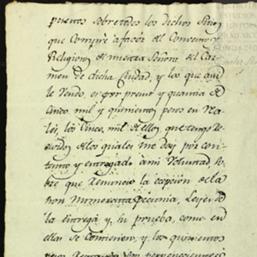 puestos sobre todos los dichos sitios
que Compre a fauor del Convento y
Religion de nuestra Señora del Car
men de dicha Ciudad, y los que aui
le Vendo es por precio y quantia de
Cinco mil y quinientos pesos en Re
ales, los Cinco mil de ellos que tengo Re
cividos de los quales me doy por con
tento y entregado a mi Voluntad so
bre que Renuncio la ecepcion de la
non Numerata Pecunia, Leyes de
la entrega y su prueba, como en
ellas se Contienen, y los quinientos